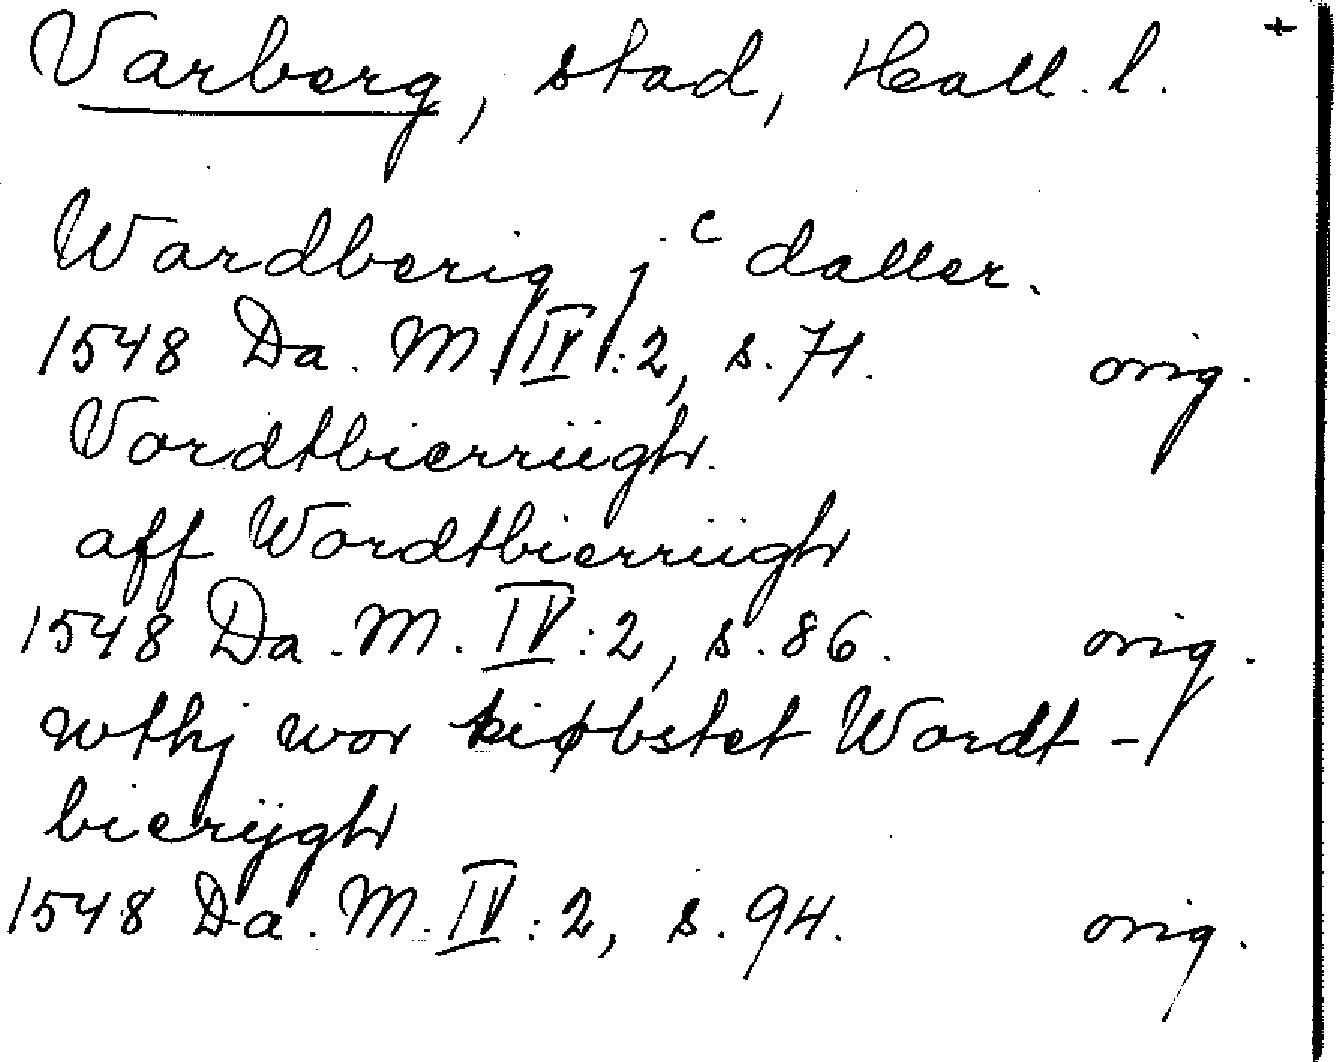 Varberg, stad, Hall. l. +
Wardberig j c daller.
1548 Da. M. IV:2, s. 71. orig.
Vordtbierriigh.
aff Wordtbierriigh
1548 Da. M. IV:2, s. 86. orig.
wthj wor kiøbstet Wordt-
bierijgh
1548 Da. M. IV:2, s. 94. orig.